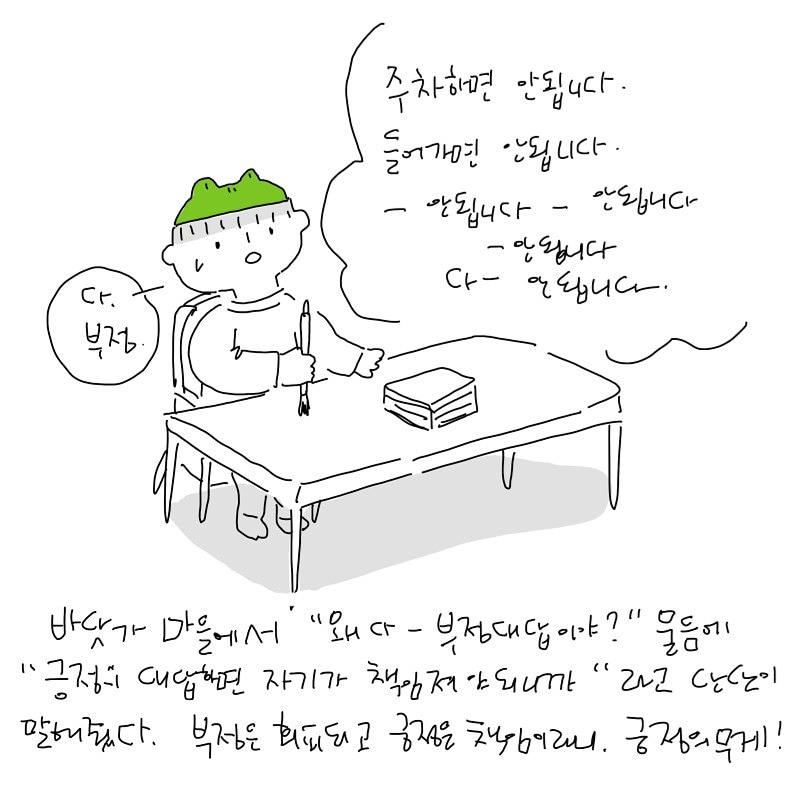 주차하면 안됩니다.
들어가면 안됩니다.
- 안됩니다 - 안됩니다
- 안됩니다
다- 안됩니다.
다.
부정.
바닷가 마을에서 "왜 다 - 부정대답이야?" 물음에
"긍정의 대답하면 자기가 책임져야되니까" 라고
말해줬다. 부정은 회피되고 긍정은 책임이라니. 긍정의 무게!